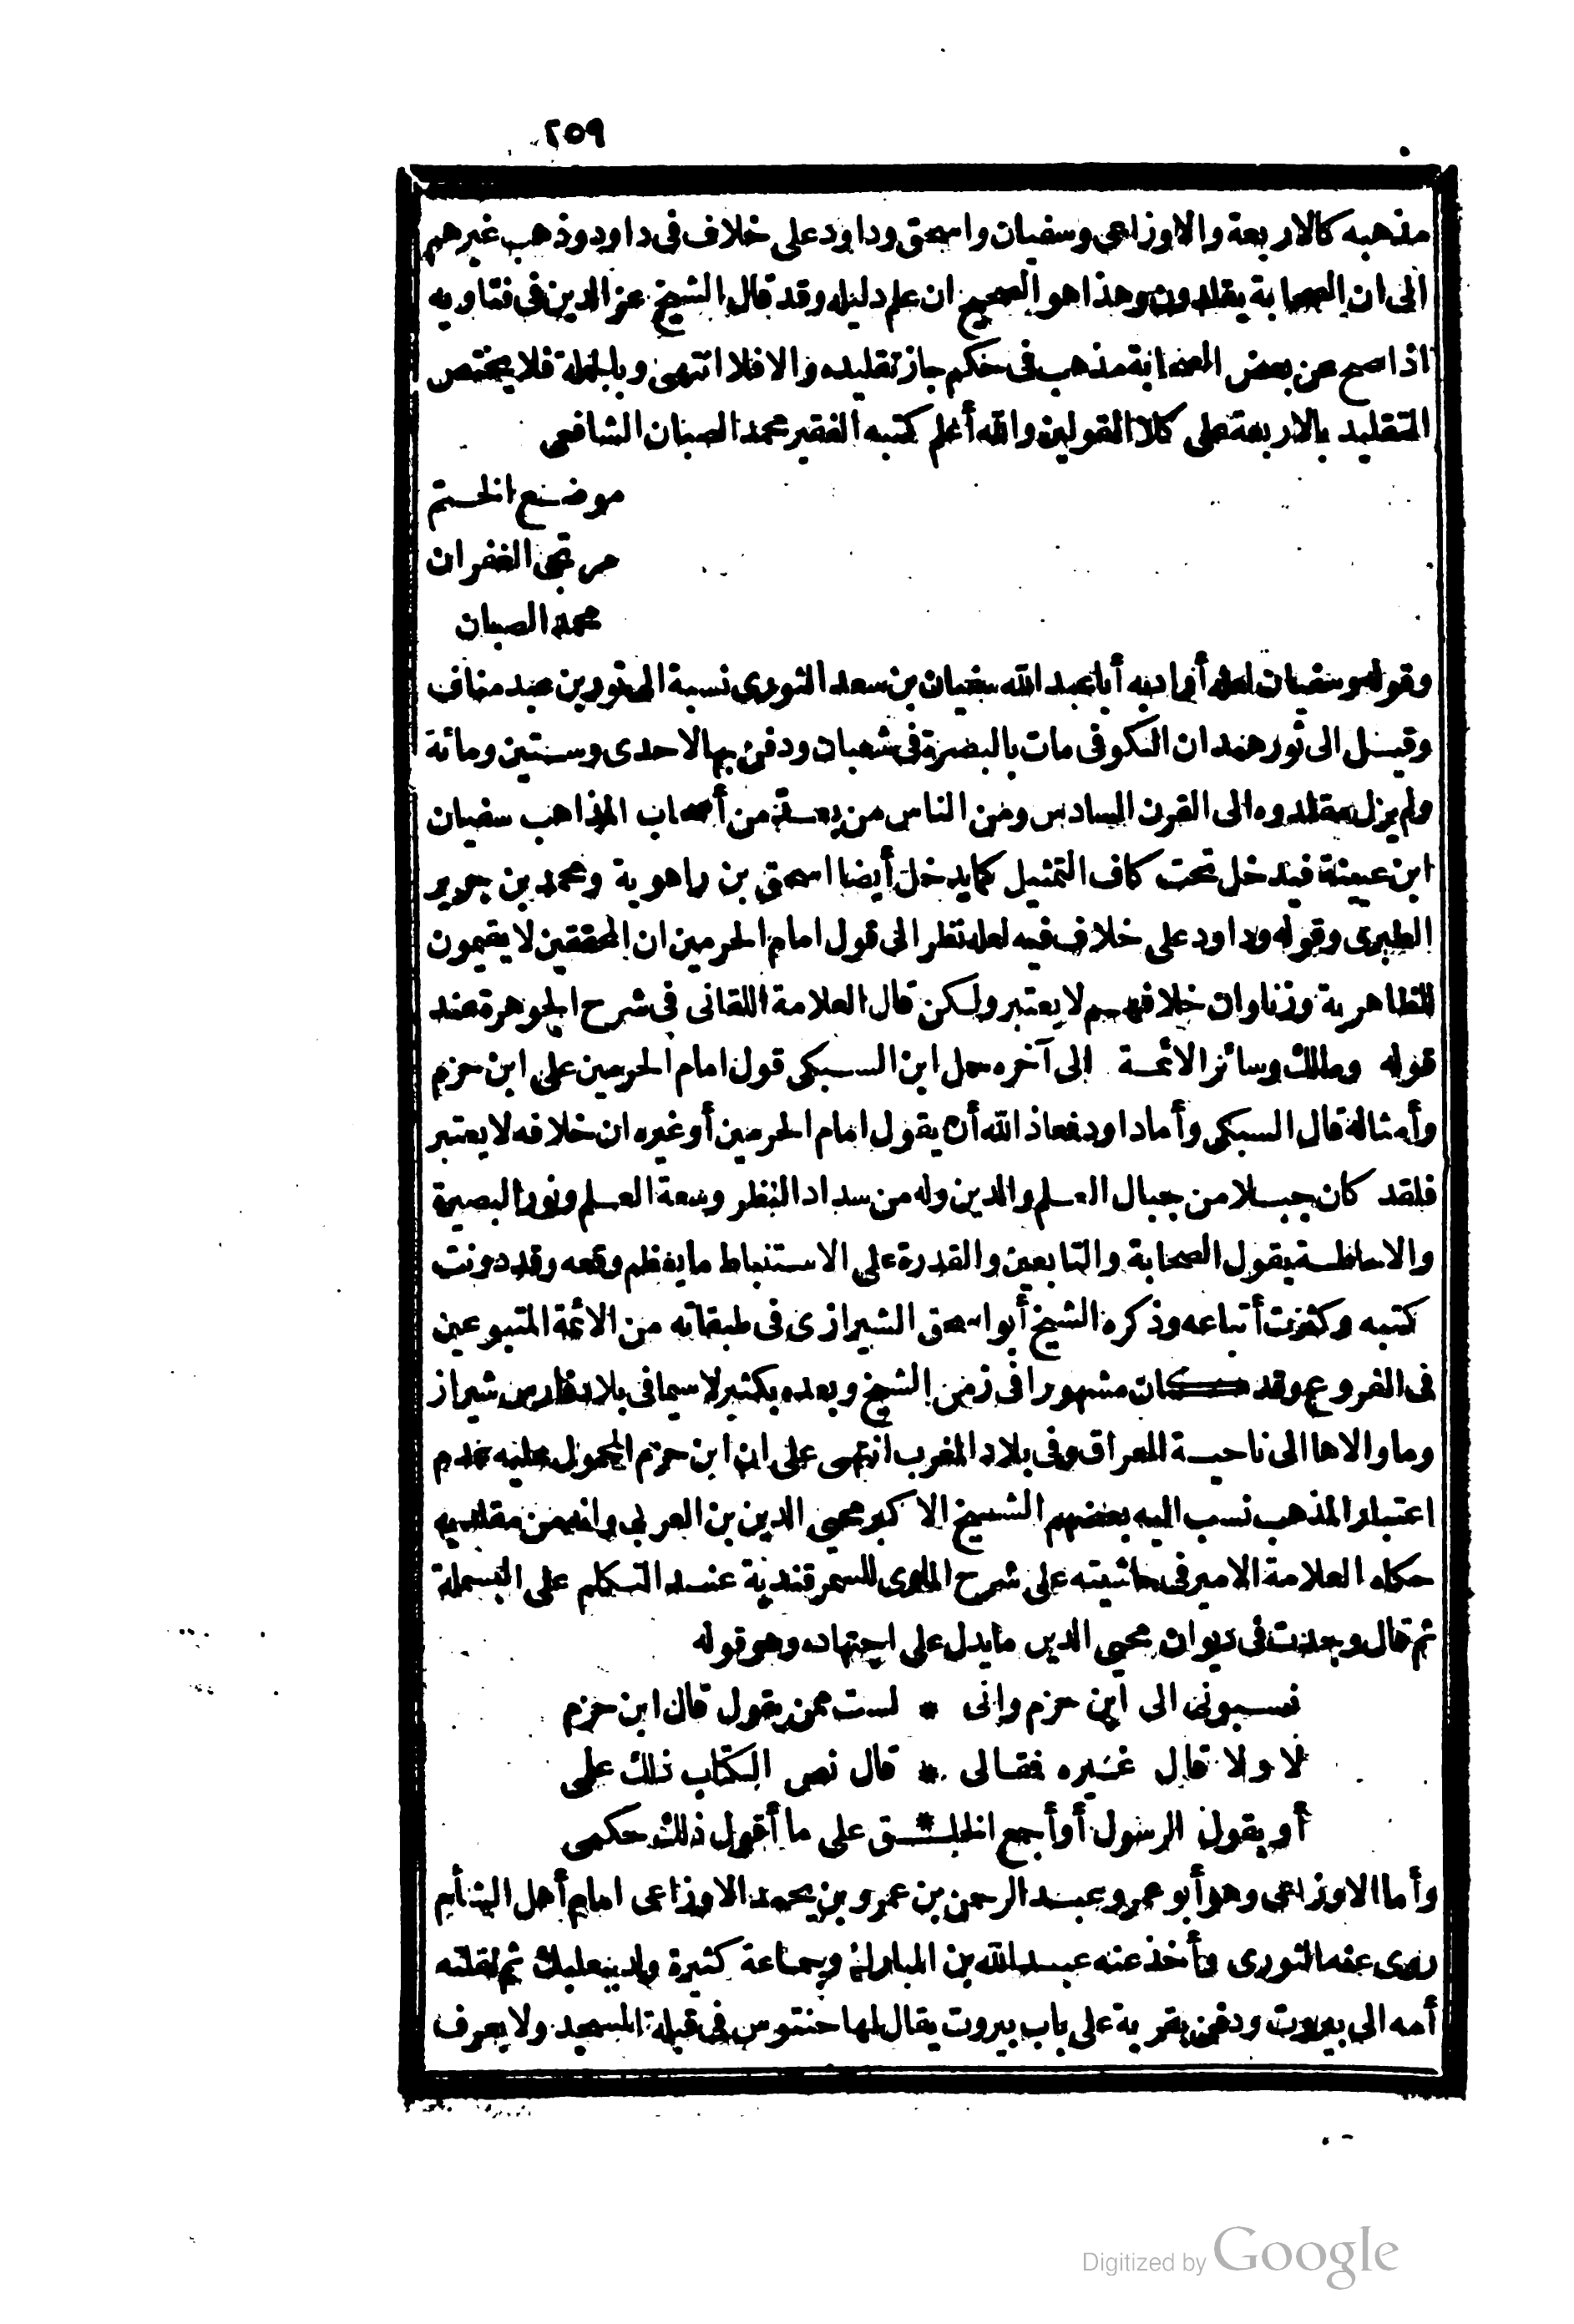 ٢٥٩
مذهبه كالاربعة والاوزاعى وسفيان واسحق وداود على خلاف فى داود وذهب غيرهم
الى ان الصحابة يقلدون وهذا هو الصحيح ان علم دليله وقد قال الشيخ عز الدين فى فتاويه
اذا صح عن بعض الصحابة مذهب فى حكم جاز تقليده والا فلا انتهى وبالجملة فلا يختص
التقليد بالاربعة على كلا القولين والله أعلم كتبه الفقير محمد الصبان الشافعى
موضع الختم
مرتجى الغفران
محمد الصبان
وقوله وسفيان لعله أراد به أبا عبد الله سفيان بن سعد الثورى نسبة الى ثور بن عبد مناف
وقيل الى ثور همدان الكوفى مات بالبصرة فى شعبان ودفن بها لاحدى وستين ومائة
ولم يزل مقلدوه الى القرن السادس ومن الناس من يعد من أصحاب المذاهب سفيان
ابن عيينة فيدخل تحت كاف التمثيل كما يدخل أيضا اسحق بن راهوية ومحمد بن جرير
الطبرى وقوله وداود على خلاف فيه لعله نظر الى قول امام الحرمين ان المحققين لا يقيمون
للظاهرية وزنا وان خلافهم لا يعتبر ولكن قال العلامة اللقانى فى شرح الجوهرة عند
قوله ومالك وسائر الائمة الى آخره حمل ابن السبكى قول امام الحرمين على ابن حزم
وأمثاله قال السبكى وأما داود فعاذ الله أن يقول امام الحرمين أو غيره ان خلافه لا يعتبر
فلقد كان جبلا من جبال العلم والدين وله من سداد النظر وسعة العلم ونور البصيرة
والاحاطة بقول الصحابة والتابعين والقدرة على الاستنباط ما يعظم وقعه وقد دونت
كتبه وكثرت أتباعه وذكره الشيخ أبو اسحق الشيرازى فى طبقاته من الائمة المتبوعين
فى الفروع وقد كان مشهورا فى زمن الشيخ وبعده بكثير لا سيما فى بلاد فارس شيراز
وما والاها الى ناحية العراق وفى بلاد المغرب انتهى على ان ابن حزم المحمول عليه عدم
اعتبار المذهب نسب اليه بعضهم الشيخ الاكبر محيى الدين بن العربى وانه من مقلديه
حكاه العلامة الامير فى حاشيته على شرح الملوى للسمرقندية عند التكلم على البسملة
ثم قال وجدت فى ديوان محيى الدين ما يدل على اجتهاده وهو قوله
نسبونى الى ابن حزم وانى * لست ممن يقول قال ابن حزم
لا ولا قال غيره فقالى * قال نص الكتاب ذلك علمى
أو يقول الرسول أو أجمع الخلـ*ـق على ما أقول ذلك حكمى
وأما الاوزاعى وهو أبو عمرو عبد الرحمن بن عمرو بن يحمد الاوزاعى امام أهل الشأم
روى عنه الثورى وأخذ عنه عبد الله بن المبارك وجماعة كثيرة ولد ببعلبك ثم نقلته
أمه الى بيروت ودفن بقرية على باب بيروت يقال لها حنتوس فى قبلة المسجد ولا يعرف
Digitized by Google